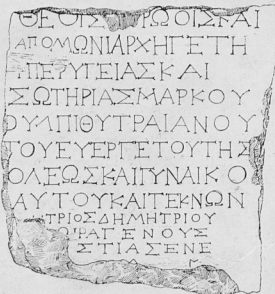 ΘΕΟΙΣ ΡΩΟΙΣΚΑΙ
ΑΠΟΜΩΝΙΑΡΧΗΓΕΤΗ
ΠΕΡΥΓΕΙΑΣΚΑΙ
ΣΩΤΗΡΙΑΣΜΑΡΚΟΥ
ΟΥΛΠΙΟΥΤΡΑΙΑΝΟΥ
ΤΟΥΕΥΕΡΓΕΤΟΥΤΗΣ
ΟΛΕΩΣΚΑΙΓΥΝΑΙΚΟ
ΑΥΤΟΥΚΑΙΤΕΚΝΩΝ
ΗΤΡΙΟΣΔΗΜΗΤΡΙΟΥ
ΡΑΓΕΝΟΥΣ
ΣΤΙΑΣΕΝΕ